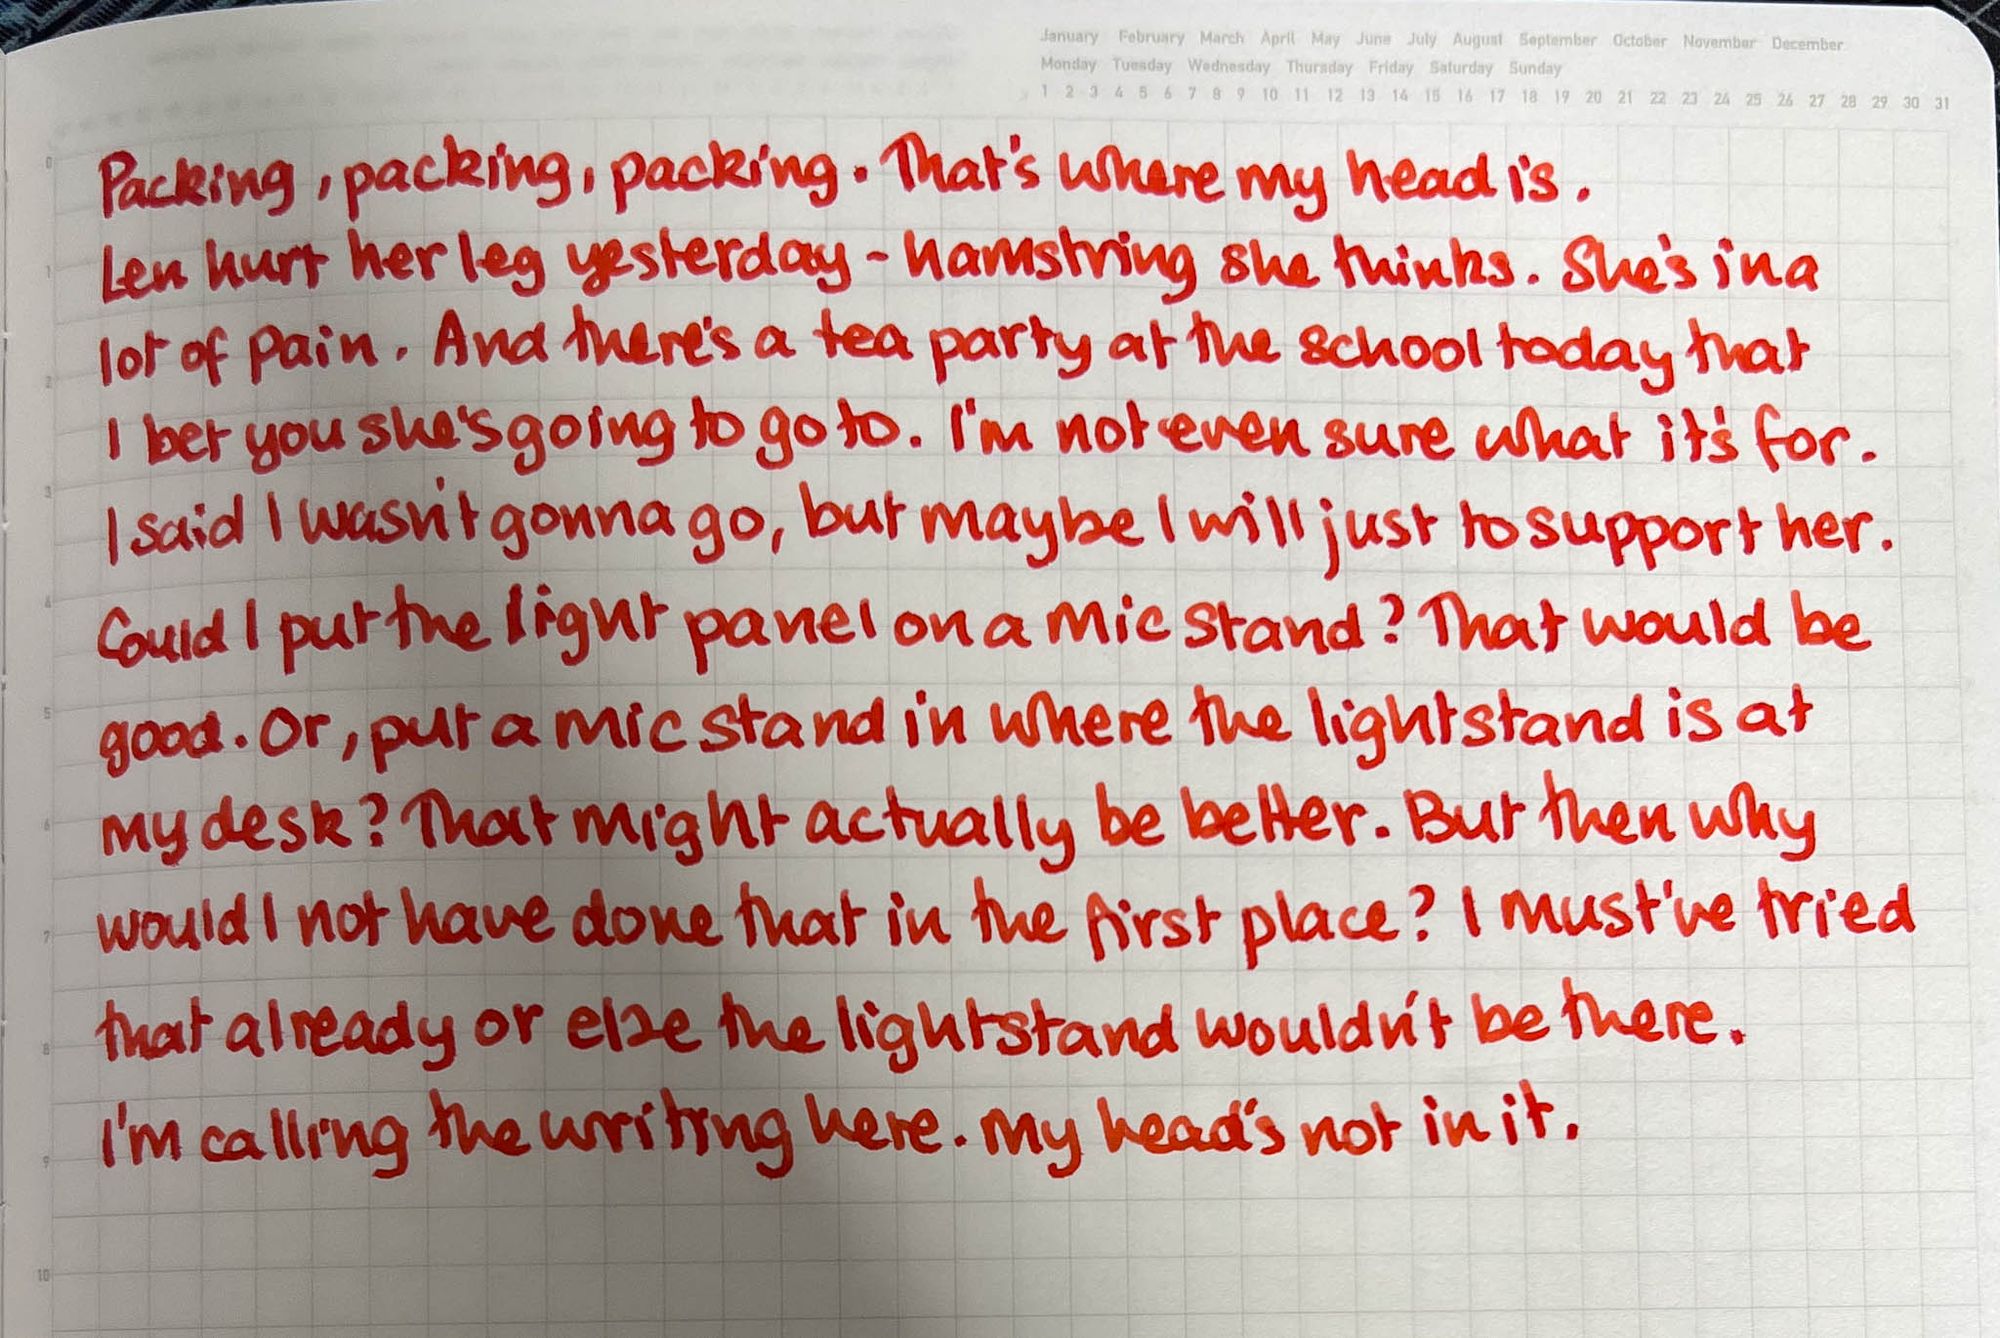 January February March April May June July August September October November December
Monday Tuesday Wednesday Thursday Friday Saturday Sunday
1 2 3 4 5 6 7 8 9 10 11 12 13 14 15 16 17 18 19 20 21 22 23 24 25 26 27 28 29 30 31
0
Packing, packing, packing. That's where my head is.
1
Len hurt her leg yesterday - hamstring she thinks. She's in a
lot of pain. And there's a tea party at the school today that
2
I bet you she's going to go to. I'm not even sure what it's for.
3
I said I wasn't gonna go, but maybe I will just to support her.
4
Could I put the light panel on a mic stand? That would be
5
good. Or, put a mic stand in where the lightstand is at
6
my desk? That might actually be better. But then why
7
would I not have done that in the first place? I must've tried
8
that already or else the lightstand wouldn't be there.
9
I'm calling the writing here. My head's not in it.
10